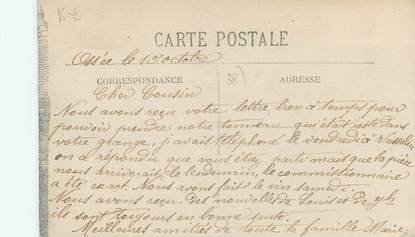 CARTE POSTALE
Ossée le 13 octobre
CORRESPONDANCE
ADRESSE
38)
Cher Cousin
Nous avons reçu votre lettre bien à temps pour
pouvoir prendre notre tonneau qui était resté dans
votre grange, j'avais téléphoné le vendredi à
on a répondu que vous étiez parti mais que la pièce
nous arriverait le lendemain, le commissionnaire
a été exact. Nous avons fait le vin samedi.
Nous avons reçu des nouvelles de Louis et de
ils sont toujours en bonne santé.
Meilleures amitiés de toute la famille Marie